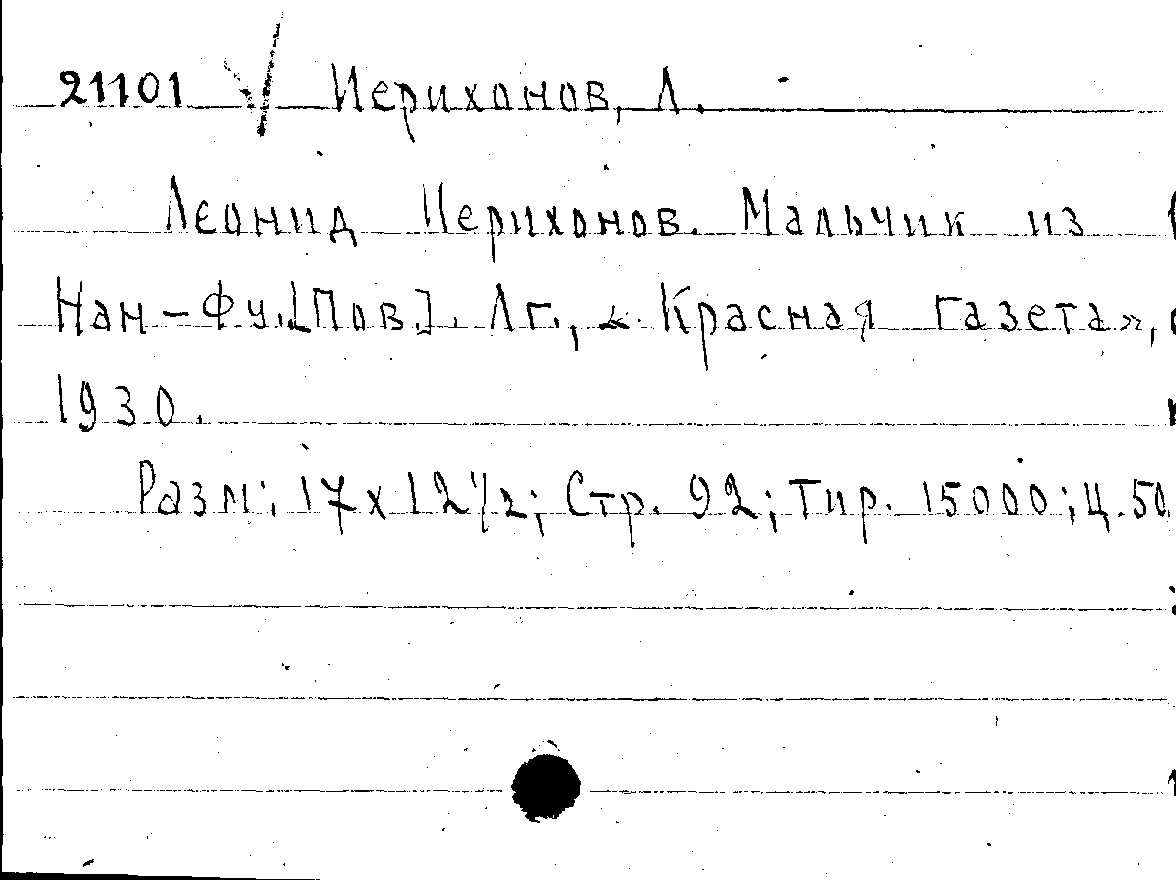 21101 Иериханов, Л.
Леонид Иерихонов. Мальчик из
Нан-Фу. [Пов]. Лг., «Красная газета»,
1930.
Разм; 17х12 1/2; Стр. 92; Тир. 15000; Ц. 50